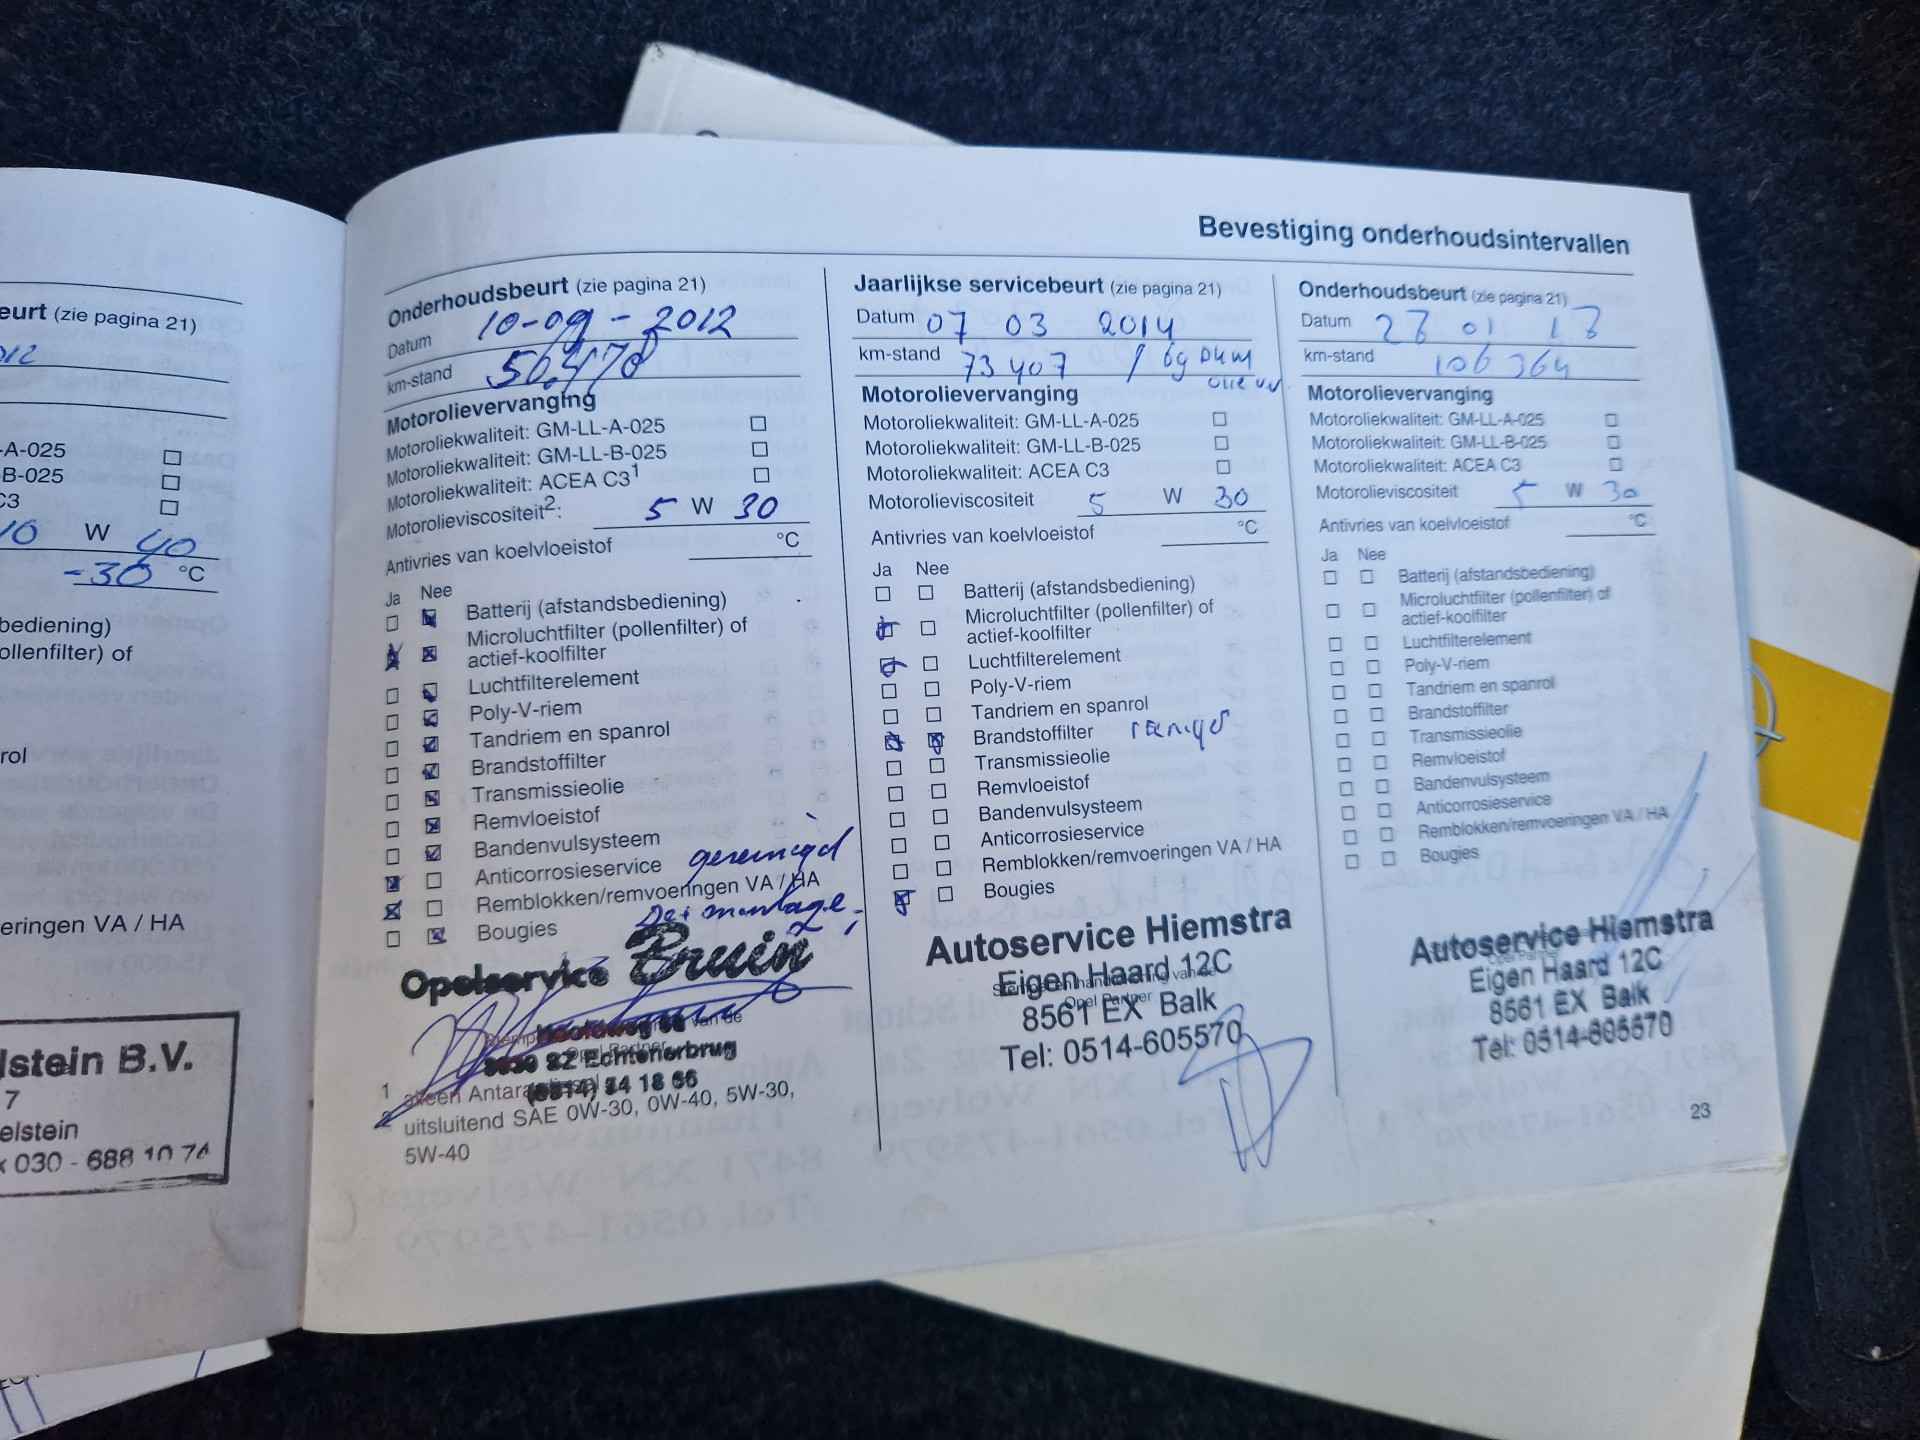 eurt (zie pagina 21)
-A-025
-B-025
C3
10 W 40
-30 °C
bediening)
ollenfilter) of
rol
eringen VA / HA
lstein B.V.
7
elstein
030 - 688 10 74
Bevestiging onderhoudsintervallen
Onderhoudsbeurt (zie pagina 21)
Datum 10-09-2012
km-stand 50.478
Motorolievervanging
Motoroliekwaliteit: GM-LL-A-025
Motoroliekwaliteit: GM-LL-B-025
Motoroliekwaliteit: ACEA C3¹
Motorolieviscositeit²: 5 W 30
Antivries van koelvloeistof °C
Ja Nee
Batterij (afstandsbediening)
Microluchtfilter (pollenfilter) of
actief-koolfilter
Luchtfilterelement
Poly-V-riem
Tandriem en spanrol
Brandstoffilter
Transmissieolie
Remvloeistof
Bandenvulsysteem
Anticorrosieservice gereinigd
Remblokken/remvoeringen VA / HA
Bougies
Opelservice Bruin
Echtenerbrug
1 alleen Antara
2 uitsluitend SAE 0W-30, 0W-40, 5W-30,
5W-40
Jaarlijkse servicebeurt (zie pagina 21)
Datum 07 03 2014
km-stand 73407
Motorolievervanging
Motoroliekwaliteit: GM-LL-A-025
Motoroliekwaliteit: GM-LL-B-025
Motoroliekwaliteit: ACEA C3
Motorolieviscositeit 5 W 30
Antivries van koelvloeistof °C
Ja Nee
Batterij (afstandsbediening)
Microluchtfilter (pollenfilter) of
actief-koolfilter
Luchtfilterelement
Poly-V-riem
Tandriem en spanrol
Brandstoffilter
Transmissieolie
Remvloeistof
Bandenvulsysteem
Anticorrosieservice
Remblokken/remvoeringen VA / HA
Bougies
Autoservice Hiemstra
Eigen Haard 12C
Opel Partner
8561 EX Balk
Tel: 0514-605570
Onderhoudsbeurt (zie pagina 21)
Datum
km-stand 106 364
Motorolievervanging
Motoroliekwaliteit: GM-LL-A-025
Motoroliekwaliteit: GM-LL-B-025
Motoroliekwaliteit: ACEA C3
Motorolieviscositeit 5 W 30
Antivries van koelvloeistof °C
Ja Nee
Batterij (afstandsbediening)
Microluchtfilter (pollenfilter) of
actief-koolfilter
Luchtfilterelement
Poly-V-riem
Tandriem en spanrol
Brandstoffilter
Transmissieolie
Remvloeistof
Bandenvulsysteem
Anticorrosieservice
Remblokken/remvoeringen VA / HA
Bougies
Autoservice Hiemstra
Eigen Haard 12C
8561 EX Balk
Tel: 0514-605570
23